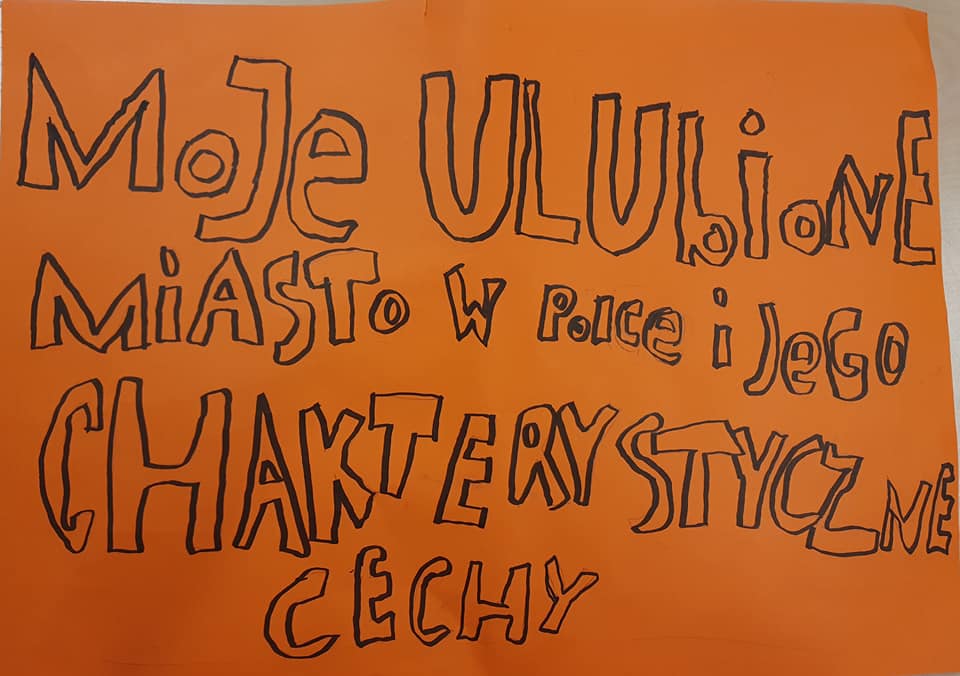 MoJe ULUbioNE
MiASTo W Polce i JeGo
CHAKTERYSTYCZNE
CECHY